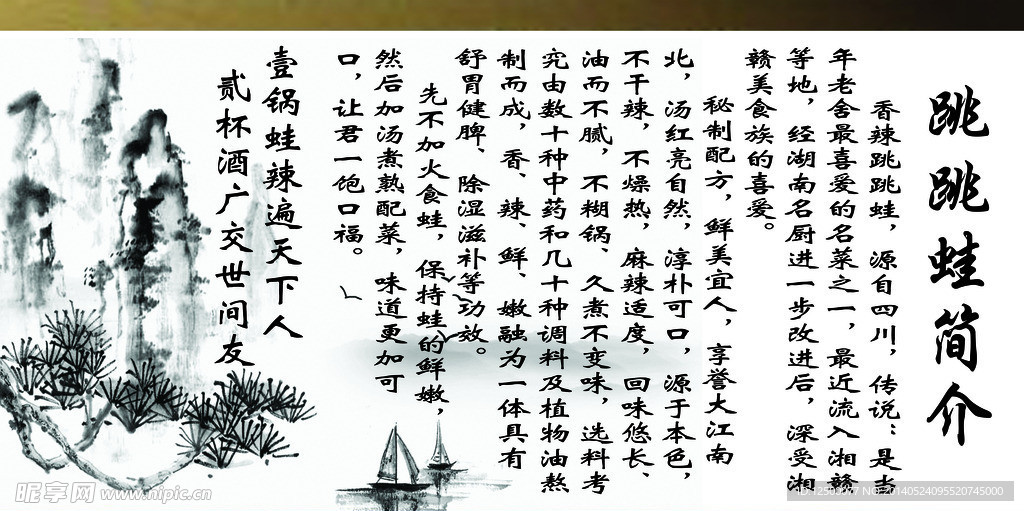 跳跳蛙简介
香辣跳跳蛙，源自四川，传说：是当
年老舍最喜爱的名菜之一，最近流入湘赣
等地，经湖南名厨进一步改进后，深受湘
赣美食族的喜爱。
秘制配方，鲜美宜人，享誉大江南
北，汤红亮自然，淳朴可口，源于本色，
不干辣，不燥热，麻辣适度，回味悠长、
油而不腻，不糊锅、久煮不变味，选料考
究由数十种中药和几十种调料及植物油熬
制而成，香、辣、鲜、嫩融为一体具有
舒胃健脾、除湿滋补等功效。
先不加火食蛙，保持蛙的鲜嫩，
然后加汤煮熟配菜，味道更加可
口，让君一饱口福。
壹锅蛙辣遍天下人
贰杯酒广交世间友
昵享网 www.nipic.cn
NO:20140524095520745000